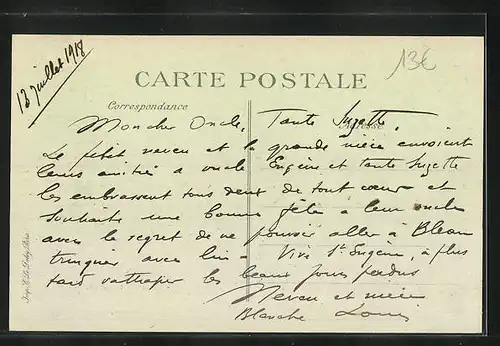 13 juillet 1918
13€
CARTE POSTALE
Correspondance
Adresse
Mon cher Oncle, Tante Suzette,
Le petit neveu et la grande nièce envoient
leurs amitiés a oncle Eugène et tante Suzette
les embrassent tous deux de tout cœur et
souhaits une bonne fête a leur oncle
avec le regret de ne pouvoir aller à
trinquer avec lui - Vive St Eugène, à plus
tard rattraper les beaux jours perdus
Neveu et nièce
Blanche Louis